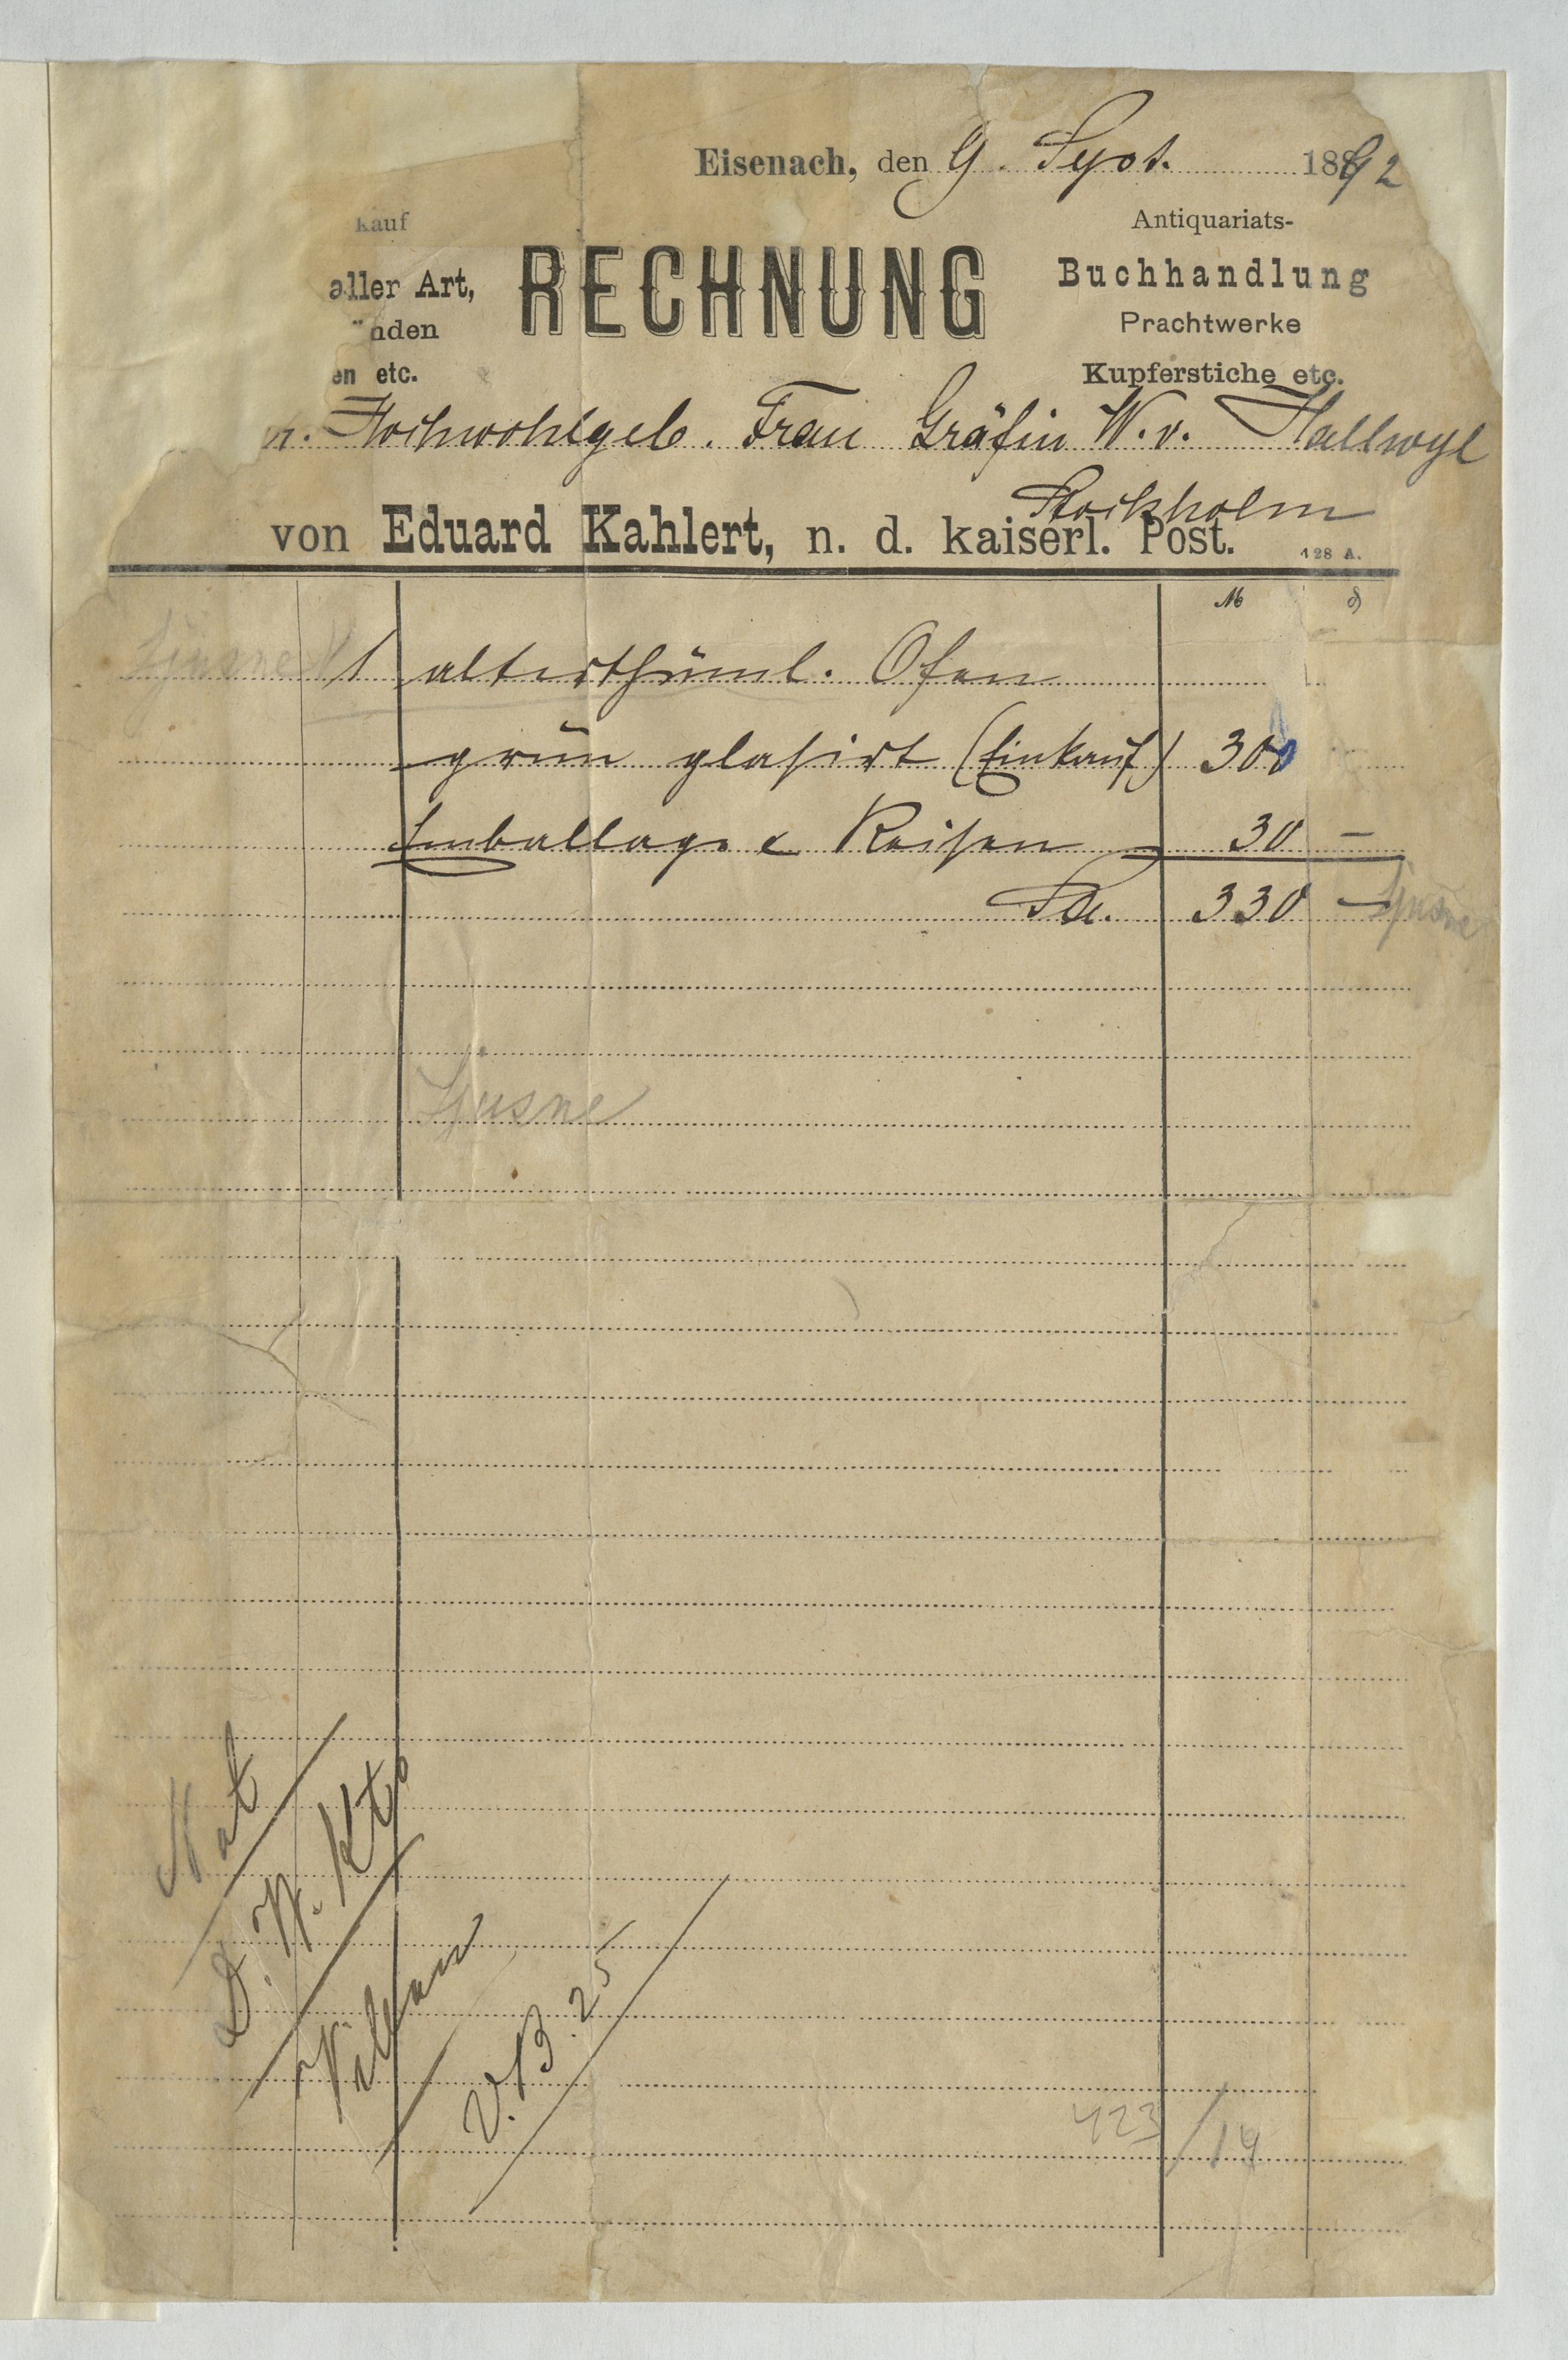 Eisenach, den 9. Sept. 1892
kauf
aller Art,
nden
en etc.
RECHNUNG
Antiquariats-
Buchhandlung
Prachtwerke
Kupferstiche etc.
Hochwohlgeb. Frau Gräfin W. v. Hallwyl
Stockholm
von Eduard Kahlert, n. d. kaiserl. Post.
128 A.
M ₰
Ljusne 1 alterthüml. Ofen
grün glasirt (Einkauf) 300
Emballage & Reisen 30 —
Sa. 330 — Ljusne
Ljusne
Nat
D. W. Kto
V. B. 25
423/14